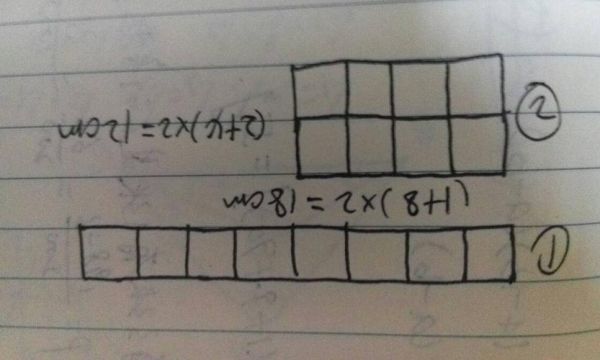 ①
(1+8)×2=18cm
②
(2+4)×2=12cm